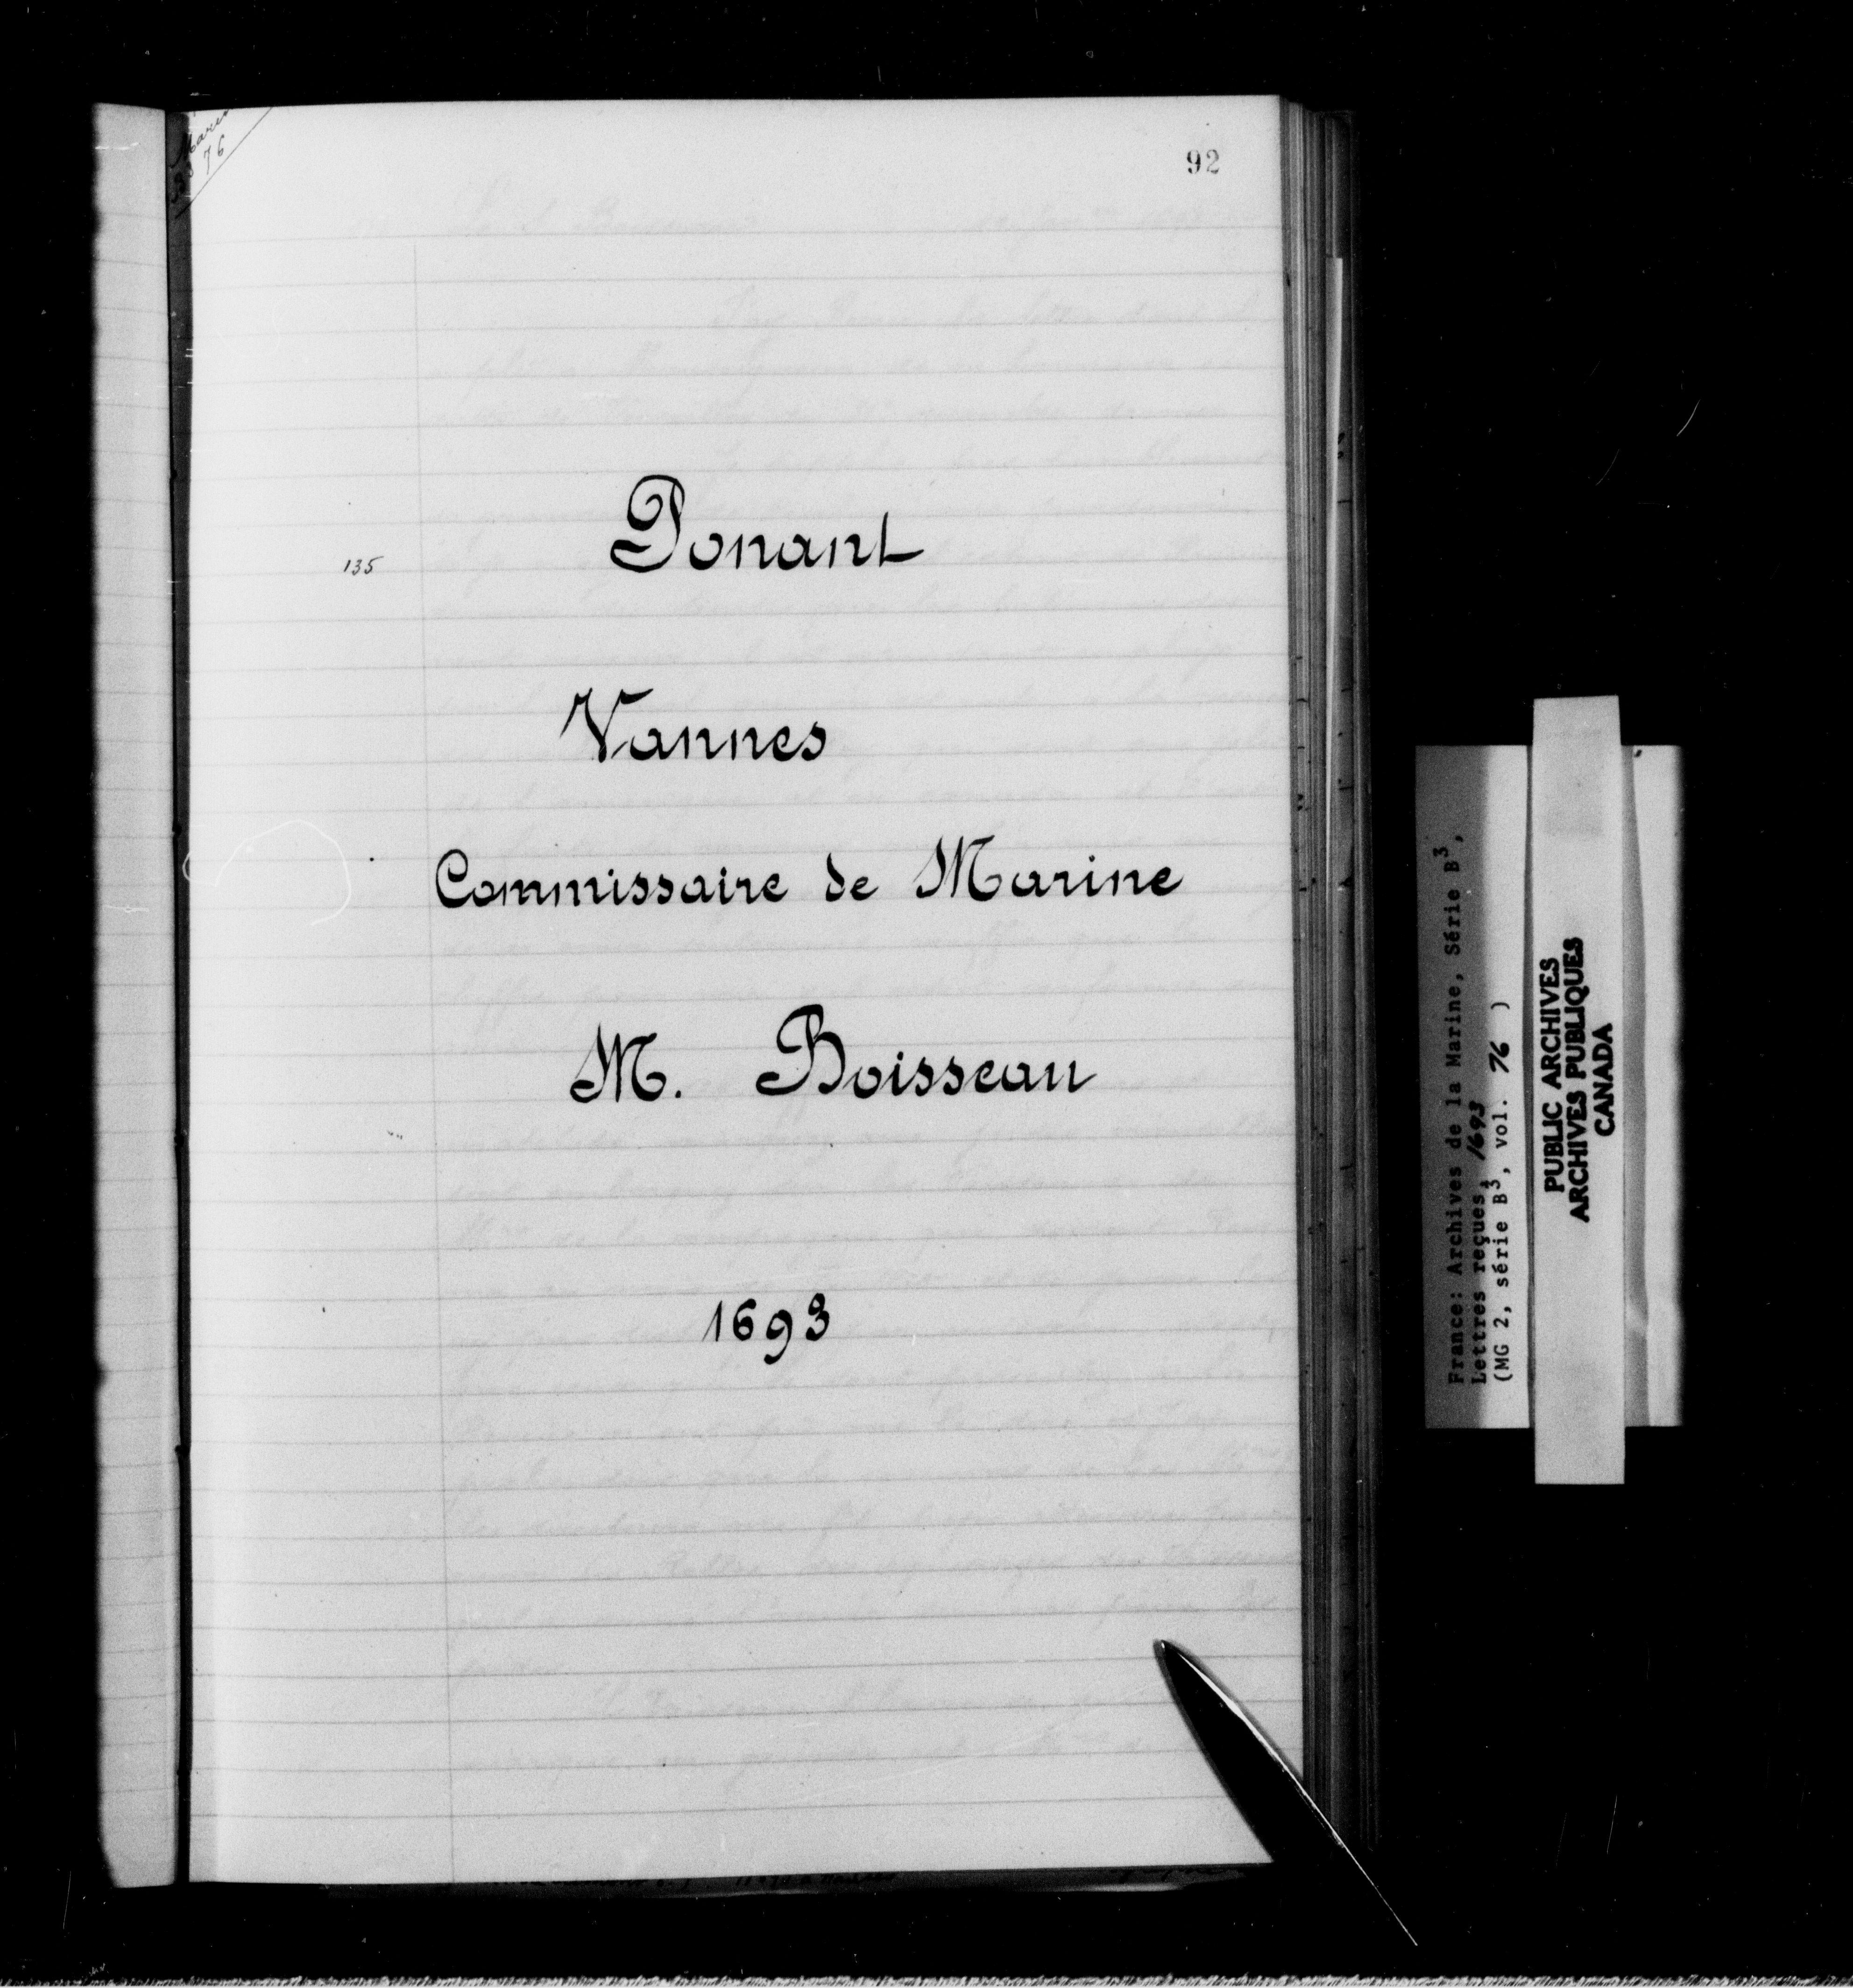 92
76
135
Ponant
Vannes
Commissaire de Marine
M. Boisseau
1693
France: Archives de la Marine, Série B3,
Lettres reçues, 1693
(MG 2, série B3, vol. 76 )
PUBLIC ARCHIVES
ARCHIVES PUBLIQUES
CANADA